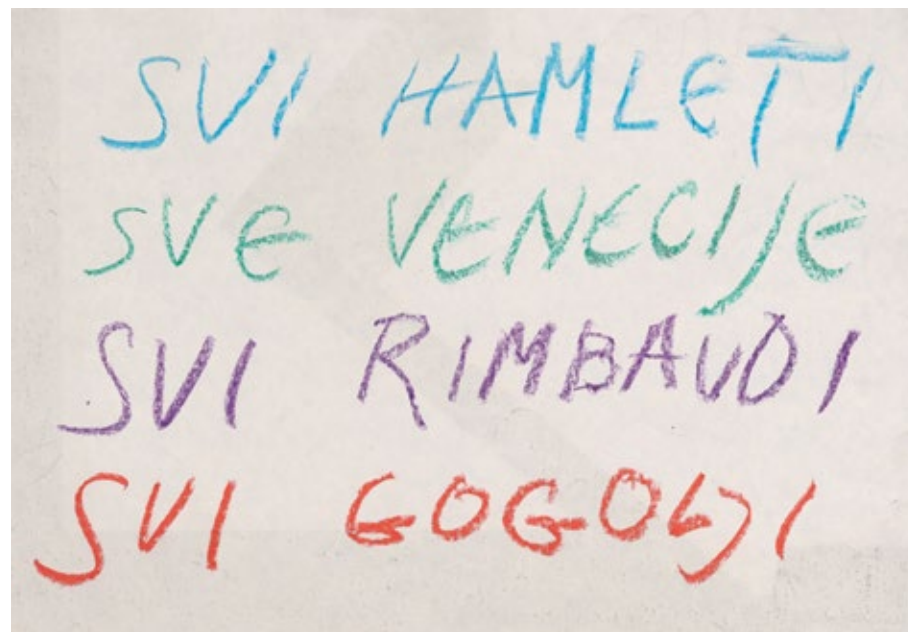 SVI HAMLETI
SVE VENECIJE
SVI RIMBAUDI
SVI GOGOLJI